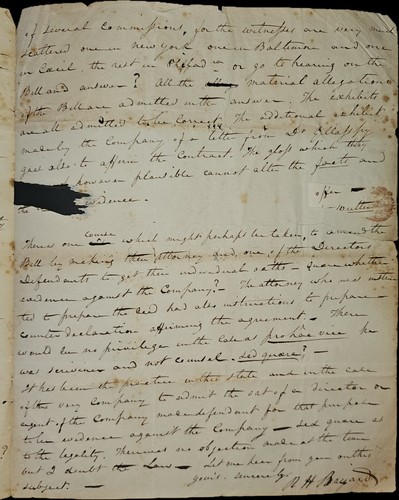 of several Commissions, for the witnesses are very much
scattered one in new york one in Baltimore and one
in Cecil, the rest in or go to hearing on the
Bill and answer? All the material allegations
of the Bill are admitted in the answer. The exhibits
are all admitted to be correct. The additional exhibit
made by the Company of a letter from Dr
goes also to affirm the Contract. The gloss which they
however plausible cannot alter the facts and
offer
evidence.
course
There is one which might perhaps be taken, to amend the
Bill by making their attorney and one of the Directors
Defendants to get their individual oaths - quere whether
evidence against the Company? - The attorney who was instruc
ted to prepare the deed had also instructions to prepare a
counter declaration affirming the agreement - There
would be no privilege in the case as pro hac vice he
was scrivener and not counsel. sed quere? -
It has been the practice in this state and in the case
of this very Company to admit the oat of a director or
agent of the Company made defendant for that purpose
to be evidence against the Company - sed quere as
to the legality. There was no objection made at the time
but I doubt the Law - Let me hear from you on this
subject. - yours. sincerely R H Bayard